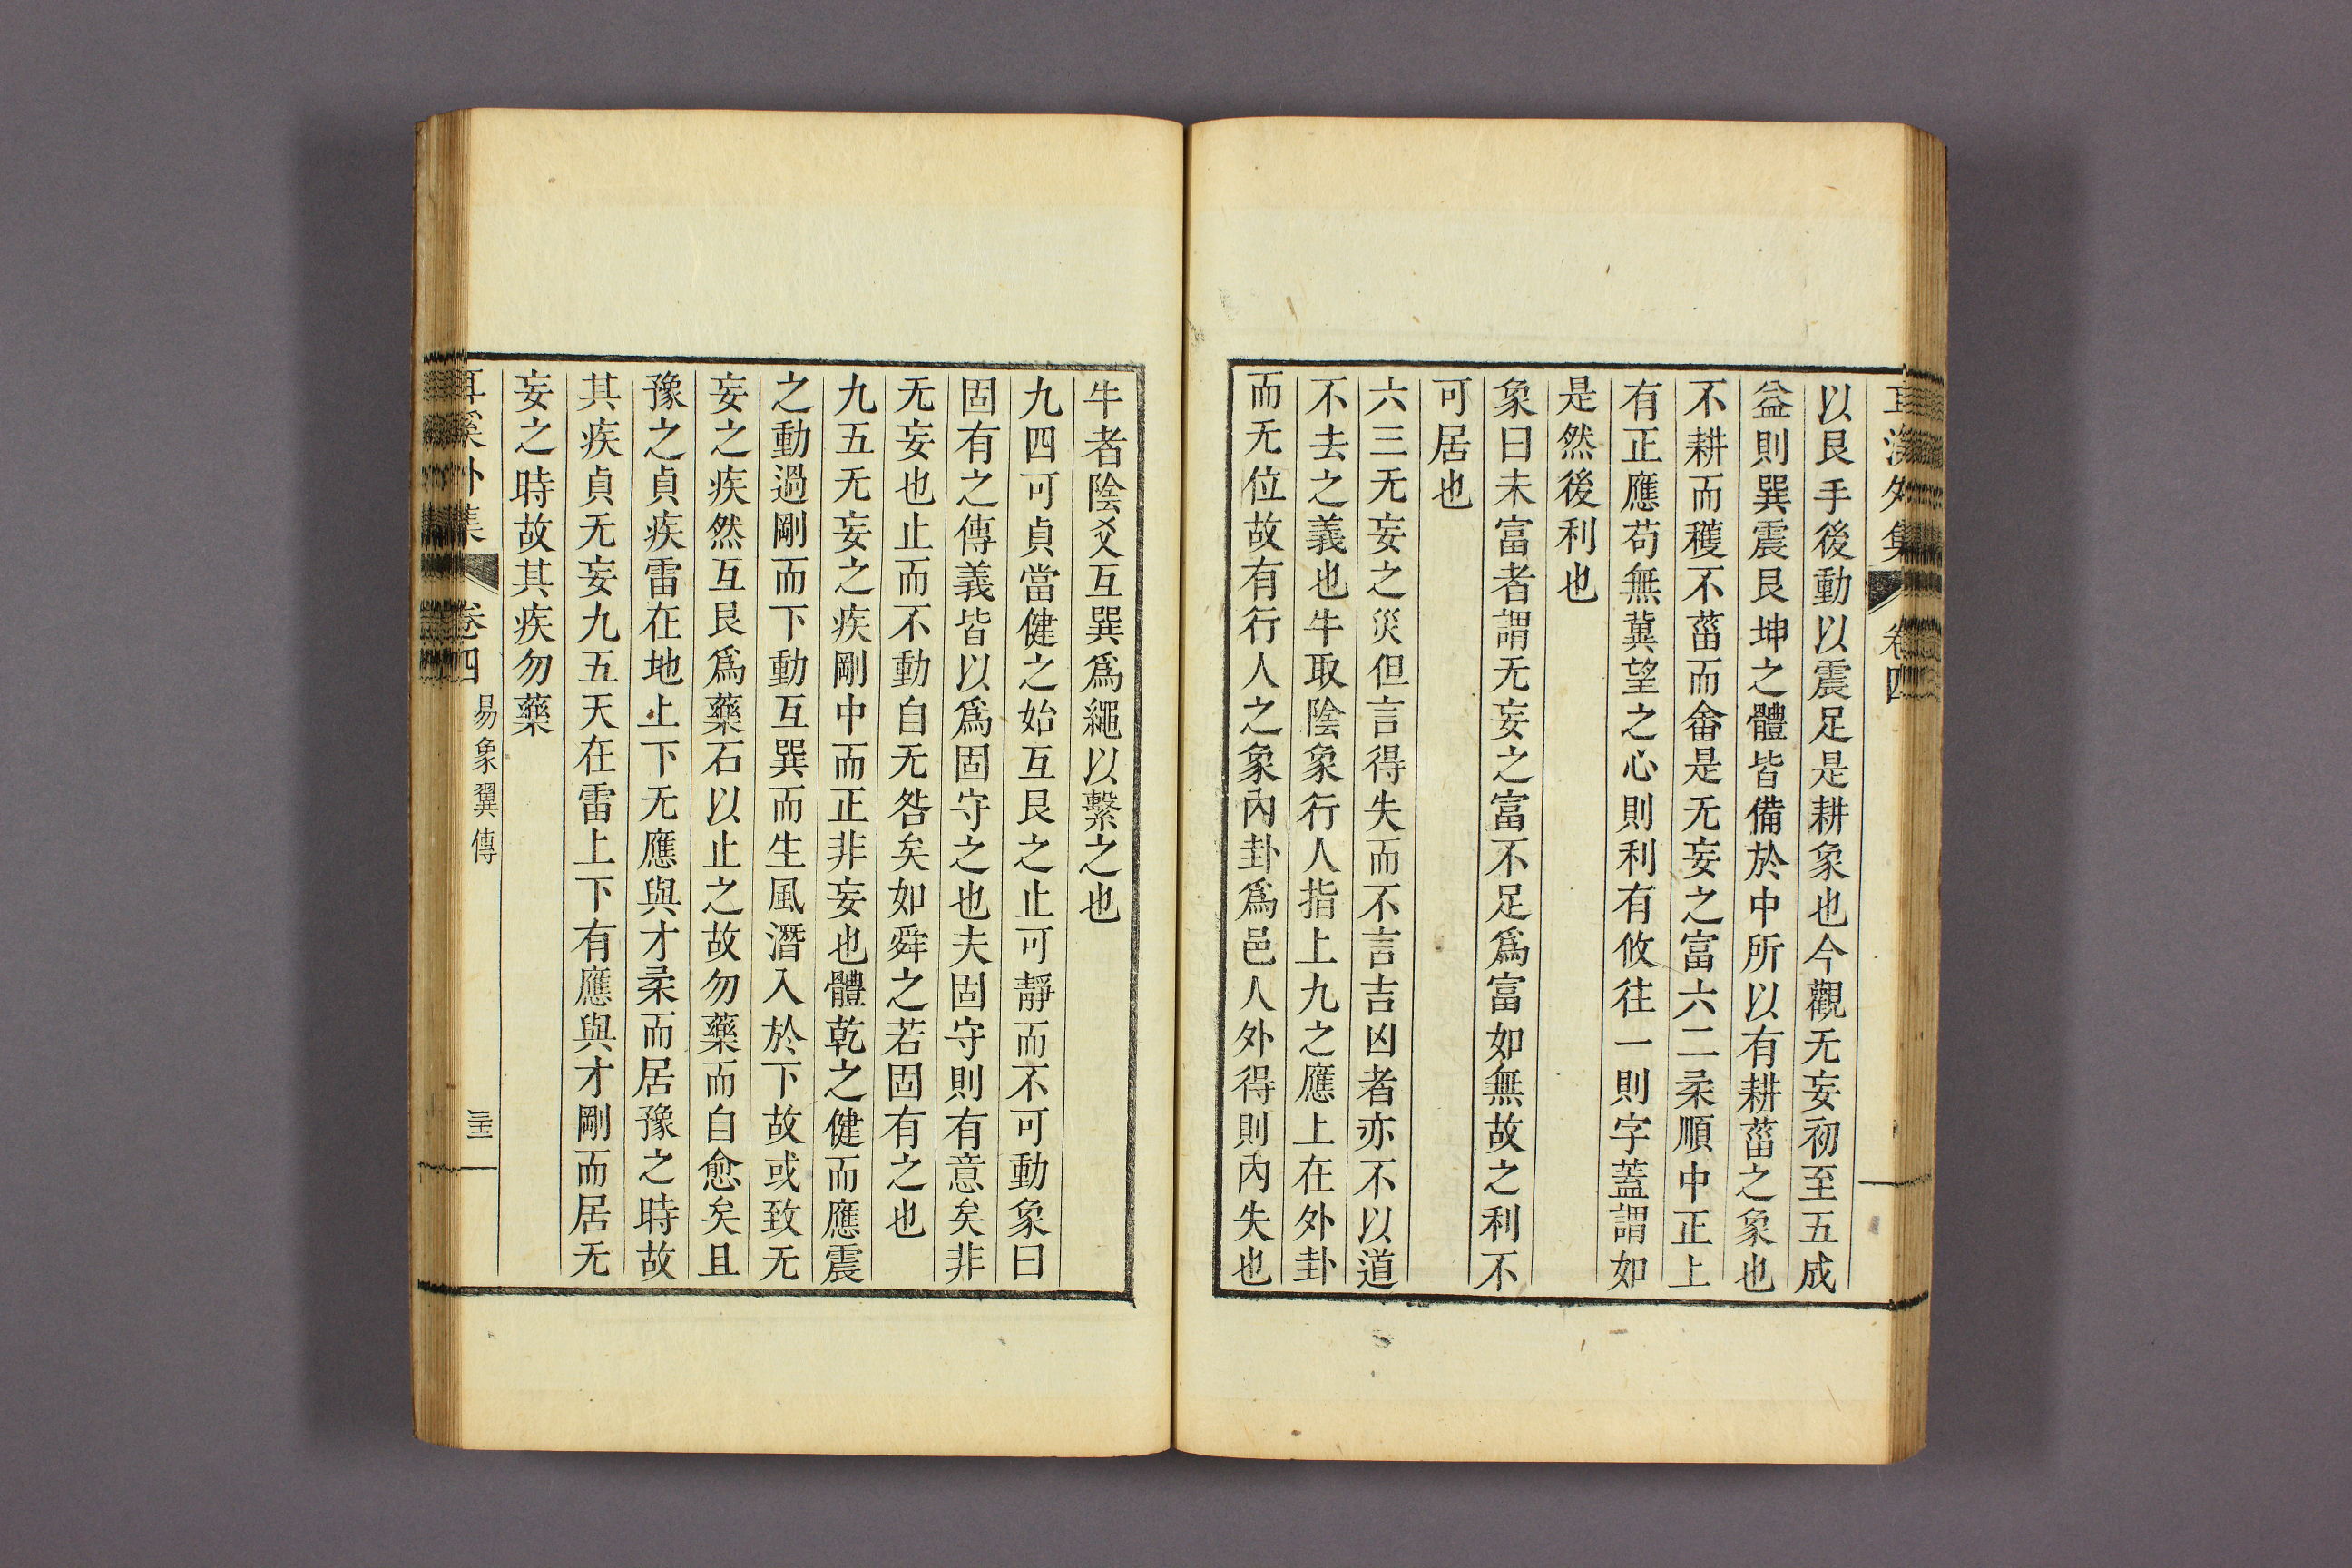 耳溪外集 卷四
以艮手後動以震足是耕象也今觀无妄初至五成
益則巽震艮坤之體皆備於中所以有耕菑之象也
不耕而穫不菑而畬是无妄之富六二柔順中正上
有正應苟無冀望之心則利有攸往一則字蓋謂如
是然後利也
象曰未富者謂无妄之富不足爲富如無故之利不
可居也
六三无妄之災但言得失而不言吉凶者亦不以道
不去之義也牛取陰象行人指上九之應上在外卦
而无位故有行人之象內卦爲邑人外得則內失也
牛者陰爻互巽爲繩以繫之也
九四可貞當健之始互艮之止可靜而不可動象曰
固有之傳義皆以爲固守之也夫固守則有意矣非
无妄也止而不動自无咎矣如舜之若固有之也
九五无妄之疾剛中而正非妄也體乾之健而應震
之動過剛而下動互巽而生風潛入於下故或致无
妄之疾然互艮爲藥石以止之故勿藥而自愈矣且
豫之貞疾雷在地上下无應與才柔而居豫之時故
其疾貞无妄九五天在雷上下有應與才剛而居无
妄之時故其疾勿藥
耳溪外集 卷四 易象翼傳